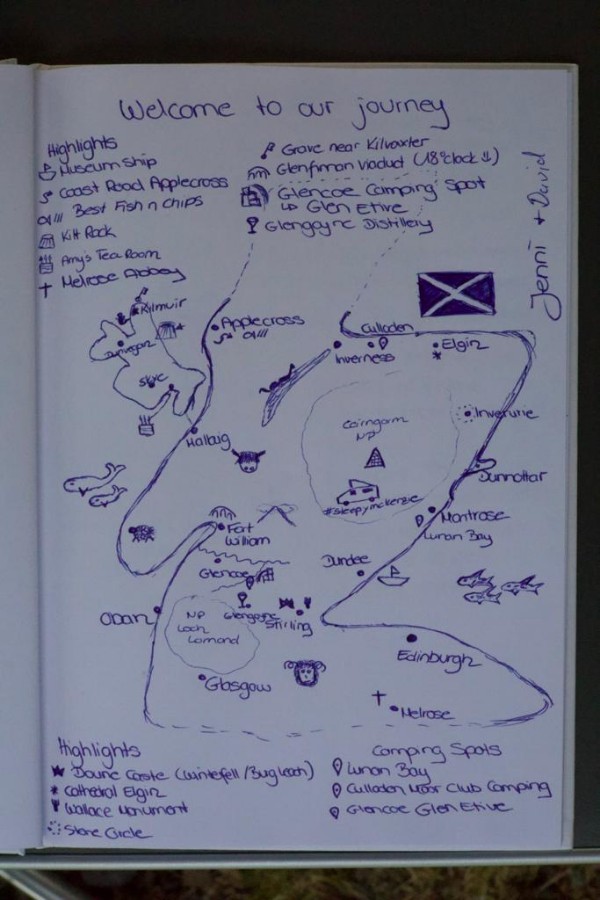 Welcome to our journey
Highlights
Museum Ship
Coast Road Applecross
Best Fish n Chips
Kilt Rock
Amy's Tea Room
Melrose Abbey
Grave near Kilvaxter
Glenfinnan Viaduct (18 o'clock !!)
Glencoe Camping Spot
↳ Glen Etive
Glengoyne Distillery
Jenni + David
Kilmuir
Dunvegan
Skye
Applecross
Culloden
Inverness
Elgin
Inverurie
Cairngorm
NP
#sleepymckenzie
Mallaig
Dunnottar
Montrose
Lunan Bay
Fort
William
Glencoe
Dundee
Oban
NP
Loch
Lomond
Glengoyne
Stirling
Edinburgh
Glasgow
Melrose
Highlights
Doune Castle (Winterfell / Burg Leoch)
Cathedral Elgin
Wallace Monument
Stone Circle
Camping Spots
Lunan Bay
Culloden Moor Club Camping
Glencoe Glen Etive